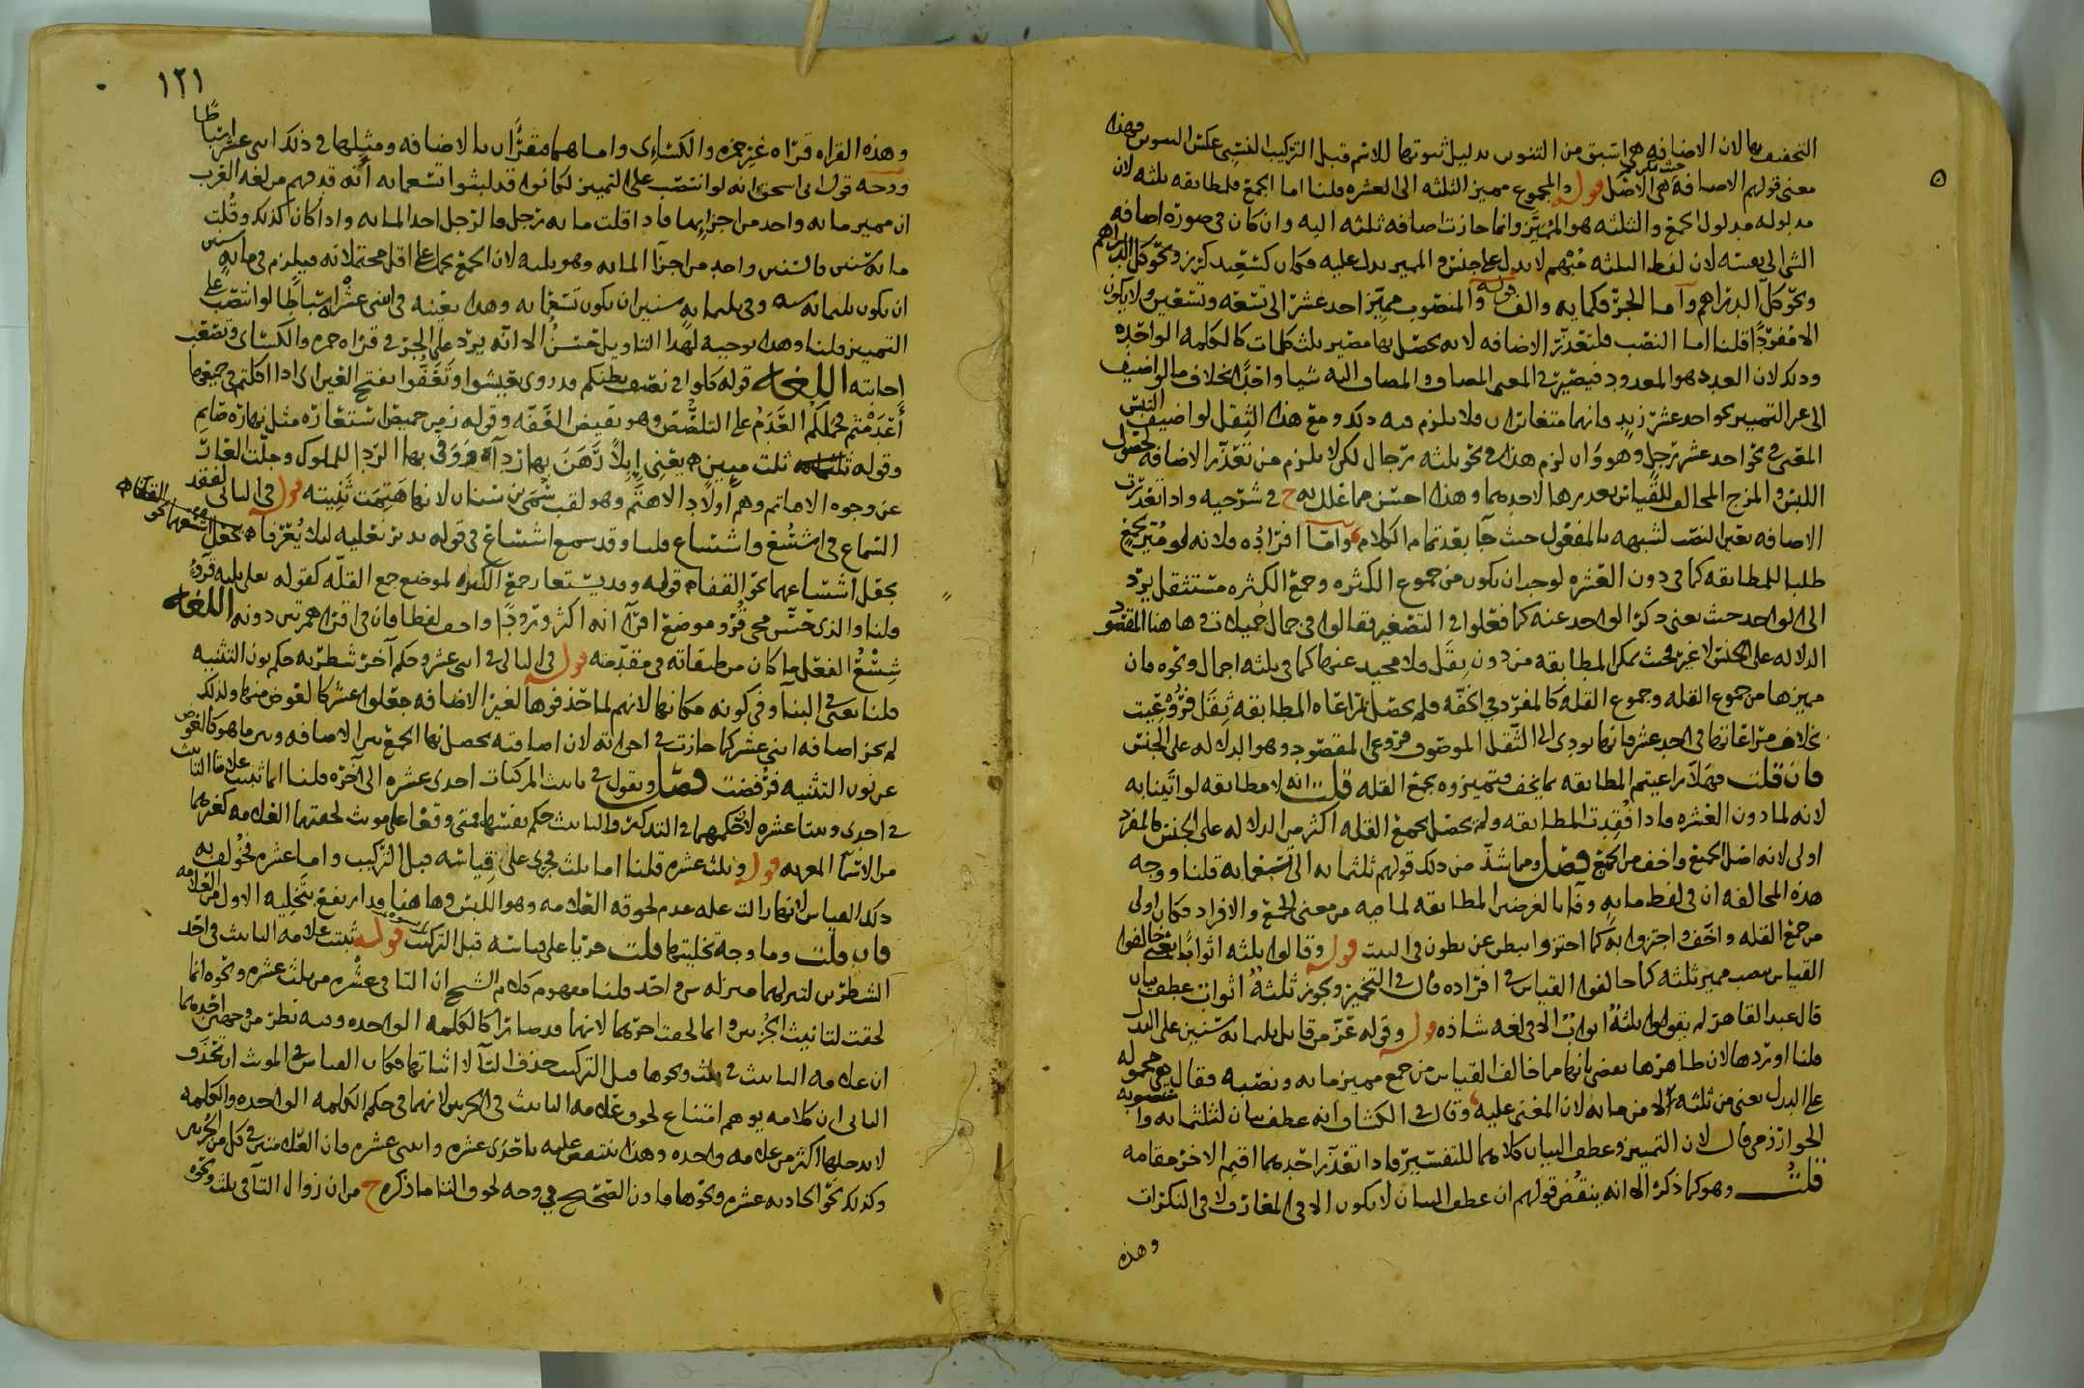 التخفيف بها لان الاضافه هي اسبق من التنوين بدليل ثبوتها للاسم قبل التركيب النسبي عكس التنوين فهذه
معنى قولهم الاضافه هي الاصل قوله والمجموع مميز الثلثه الى العشره قلنا اما الجمع فلمطابقه ثلثه لان
مدلوله مدلول الجمع والثلثه هو المميز وانما جازت اضافه ثلثه اليه وان كان في صوره اضافه
الشي الى نفسه لان لفظ الثلثه مبهم لا يدل على جنس والمميز يدل عليه فكان كسعيد كرز ونحو كل الدراهم
ونحو كل الدراهم واما الجر فكمايه والف قوله والمنصوب مميز احد عشر الى تسعه وتسعين ولا يكون
الا مفردا قلنا اما النصب فلتعذر الاضافه لانه يحصل بها مصير ثلث كلمات كالكلمه الواحده
وذلك لان العدد هو المعدود فيصير في المعنى المضاف والمضاف اليه شيا واحدا بخلاف ما لو اضيف
الى غير التمييز نحو احد عشر زيد فانهما متغايران فلا يلزم فيه ذلك ومع هذا الثقل لو اضيف التبس
المعنى في نحو احد عشر رجل وهو وان لزم هذا في نحو ثلثه رجال لكن لا يلزم من تعذر الاضافه لحصول
اللبس والمزج المخالف للقياس تعذرها لاحدهما وهذا احسن مما علل به ح في شرحيه واذا تعذرت
الاضافه تعين النصب لشبهه بالمفعول حيث جا بعد تمام الكلام واما افراده فلانه لو ميز بجمع
طلبا للمطابقه كما في دون العشره لوجب ان يكون من جموع الكثره وجمع الكثره مستثقل يرد
الى الواحد حيث يغني ذكر الواحد عنه كما فعلوا في التصغير فقالوا في جمال جميلات وها هنا المقصود
الدلاله على الجنس لا غير فحيث يمكن المطابقه من دون ثقل فلا محيد عنها كما في ثلثه اجمال ونحوه فان
مميزها من جموع القله وجموع القله كالمفرد في الخفه فلم يحصل بمراعاه المطابقه ثقل فروعيت
بخلاف مراعاتها في احد عشر فانها تودي الى الثقل الموصوف فروعي المقصود وهو الدلاله على الجنس
فان قلت فهلا راعيتم المطابقه بما يخف فتميزوه بجمع القله قلت انه لا مطابقه لو اتينا به
لانه لما دون العشره فاذا فقدت المطابقه ولم يحصل بجمع القله اكثر من الدلاله على الجنس فالمفرد
اولى لانه اصل الجمع واخف من الجمع فصل ومما شذ من ذلك قولهم ثلثمايه الى تسعمايه قلنا ووجه
هذه المخالفه ان في لفظ مايه وفا بالغرضين المطابقه لما فيه من معنى الجمع والافراد فكان اولى
من جمع القله واخف واجتزوا به كما اجتزوا ببطن عن بطون في البيت قوله وقالوا ثلثه اثوابا يعني خالفوا
القياس بنصب مميز ثلثه كما خالفوا القياس في افراده قال في التخمير ويجوز ثلثه اثواب عطف بيان
قال عبد القاهر لم يقولوا ثلثه اثواب الا في لغه شاذه قوله وقوله عز من قايل ثلثمايه سنين على البدل
قلنا اوردها لان ظاهرها يقضي بانها مما خالف القياس من جمع مميز مايه ونصبه فقال هي محموله
على البدل يعني من ثلثه لا من مايه لان المعنى عليه وقال في الكشاف انه عطف بيان لثلثمايه منصوبه وا
لخوارزمي قال لان التمييز وعطف البيان كلاهما للتفسير فاذا تعذر احدهما اقيم الاخر مقامه
قلت وهو كما ذكر الا انه ينقض قولهم ان عطف البيان لا يكون الا في المعارف لا في النكرات
وهذه
١٢١
وهذه القراه قراه غير حمزه والكساءي واما هما فقراا بالاضافه ومثلها في ذلك اثنى عشر اسباطا
ووجه قول ابي اسحق انه لو انتصب على التمييز لكانوا قد لبثوا تسعمايه انه قد فهم من لغه العرب
ان مميز مايه واحد من اجزايها فاذا قلت مايه رجل فالرجل احد المايه واذا كان كذلك وقلت
مايه سنين فالسنين واحد من اجزا المايه وهو ثلثه لان الجمع يحمل على اقل محتملاته فيلزم في مايه سنين
ان يكون ثلثمايه سنه وفي ثلثمايه سنين ان يكون تسعمايه وهذا بعينه في اثنى عشر اسباطا لو انتصب على
التمييز قلنا وهذا توجيه لهذا التاويل حسن الا انه يرد على الجر في قراه حمزه والكسائ وتصعب
اجابته اللغه قوله كلوا في نصف بطنكم وروى تعيشوا وتعفوا بفتح العين اي اذا اكلتم في جميعها
وقوله ثلثمايه ثلث ميين يعني ابلا رهن بها رداه ووفى بها الردا للملوك وجلت العار
عن وجوه الاهاتم وهم اولاد الاهتم وهو لقب سمي بن سنان لانها هتمت ثنيته قوله في التالي لفقد
السماع في اشسع واشساع قلنا وقد سمع اشساع في قوله يدير نعليه ليلا يعرفا ه يجعل
يجعل اشساعهما نحو القفا ه قوله وقد يستعار جمع الكثره لموضع جمع القله كقوله تعالى ثلثه قروء
قلنا والذي حسن مجى قرو موضع اقرا انه اكثر ورودا واخف لفظا فان في اقرا همزتين دونه اللغه
شسع النعل ما كان من طبقاته في مقدمته قوله في التالي في اثنى عشر وحكم آخر شطريه حكم نون التثنيه
قلنا يعني في البنا وفي كونه مكانها لانهم لما حذفوها لغير الاضافه جعلوا عشر كالعوض منها ولذلك
لم يجز اضافه اثني عشر كما جازت في اخواته لان اضافته يحصل بها الجمع بين الاضافه وبين ما هو كالعوض
عن نون التثنيه فرفضت فصل ويقول في تانيث المركبات احدى عشره الى آخره قلنا انما تثبت علامتا التانيث
في احدى واثنتا عشره لان حكمهما في التذكير والتانيث حكم نفسها فمتى وقعا على مونث لحقتهما العلامه كغيرهما
من الاسما المعربه قوله وثلث عشره قلنا اما ثلث فجرى على قياسه قبل التركيب واما عشره فخولف به
ذلك القياس لانها زالت عله عدم لحوقه العلامه وهو اللبس وها هنا قد ارتفع بتخليه الاول من العلامه
فان قلت وما وجه تخليتها قلت جريا على قياسه قبل التركيب قوله ثبتت علامه التانيث في احد
الشطرين لتنزلهما منزله شي واحد قلنا مفهوم كلام الشيخ ان التا في عشره من ثلث عشره ونحوه انما
لحقت لتانيث الجزين وانما لحقت اخرهما لانهما قد صارا كالكلمه الواحده وفيه نظر من وجهين احدهما
ان علامه التانيث في ثلث ونحوها قبل التركيب حذف التا لا اثباتها فكان القياس في المونث ان تحذف
الثاني ان كلامه يوهم امتناع لحوق علامه التانيث في الجزين لانهما في حكم الكلمه الواحده والكلمه
لا يدخلها اكثر من علامه واحده وهذا ينتقض عليه باحدى عشره واثنتي عشره فان العلامتين في كل من الجزين
وكذلك نحو الحاديه عشره ونحوها فاذن الصحيح في وجه لحوق التا ما ذكره ح من ان زوال التا في ثلث ونحوه